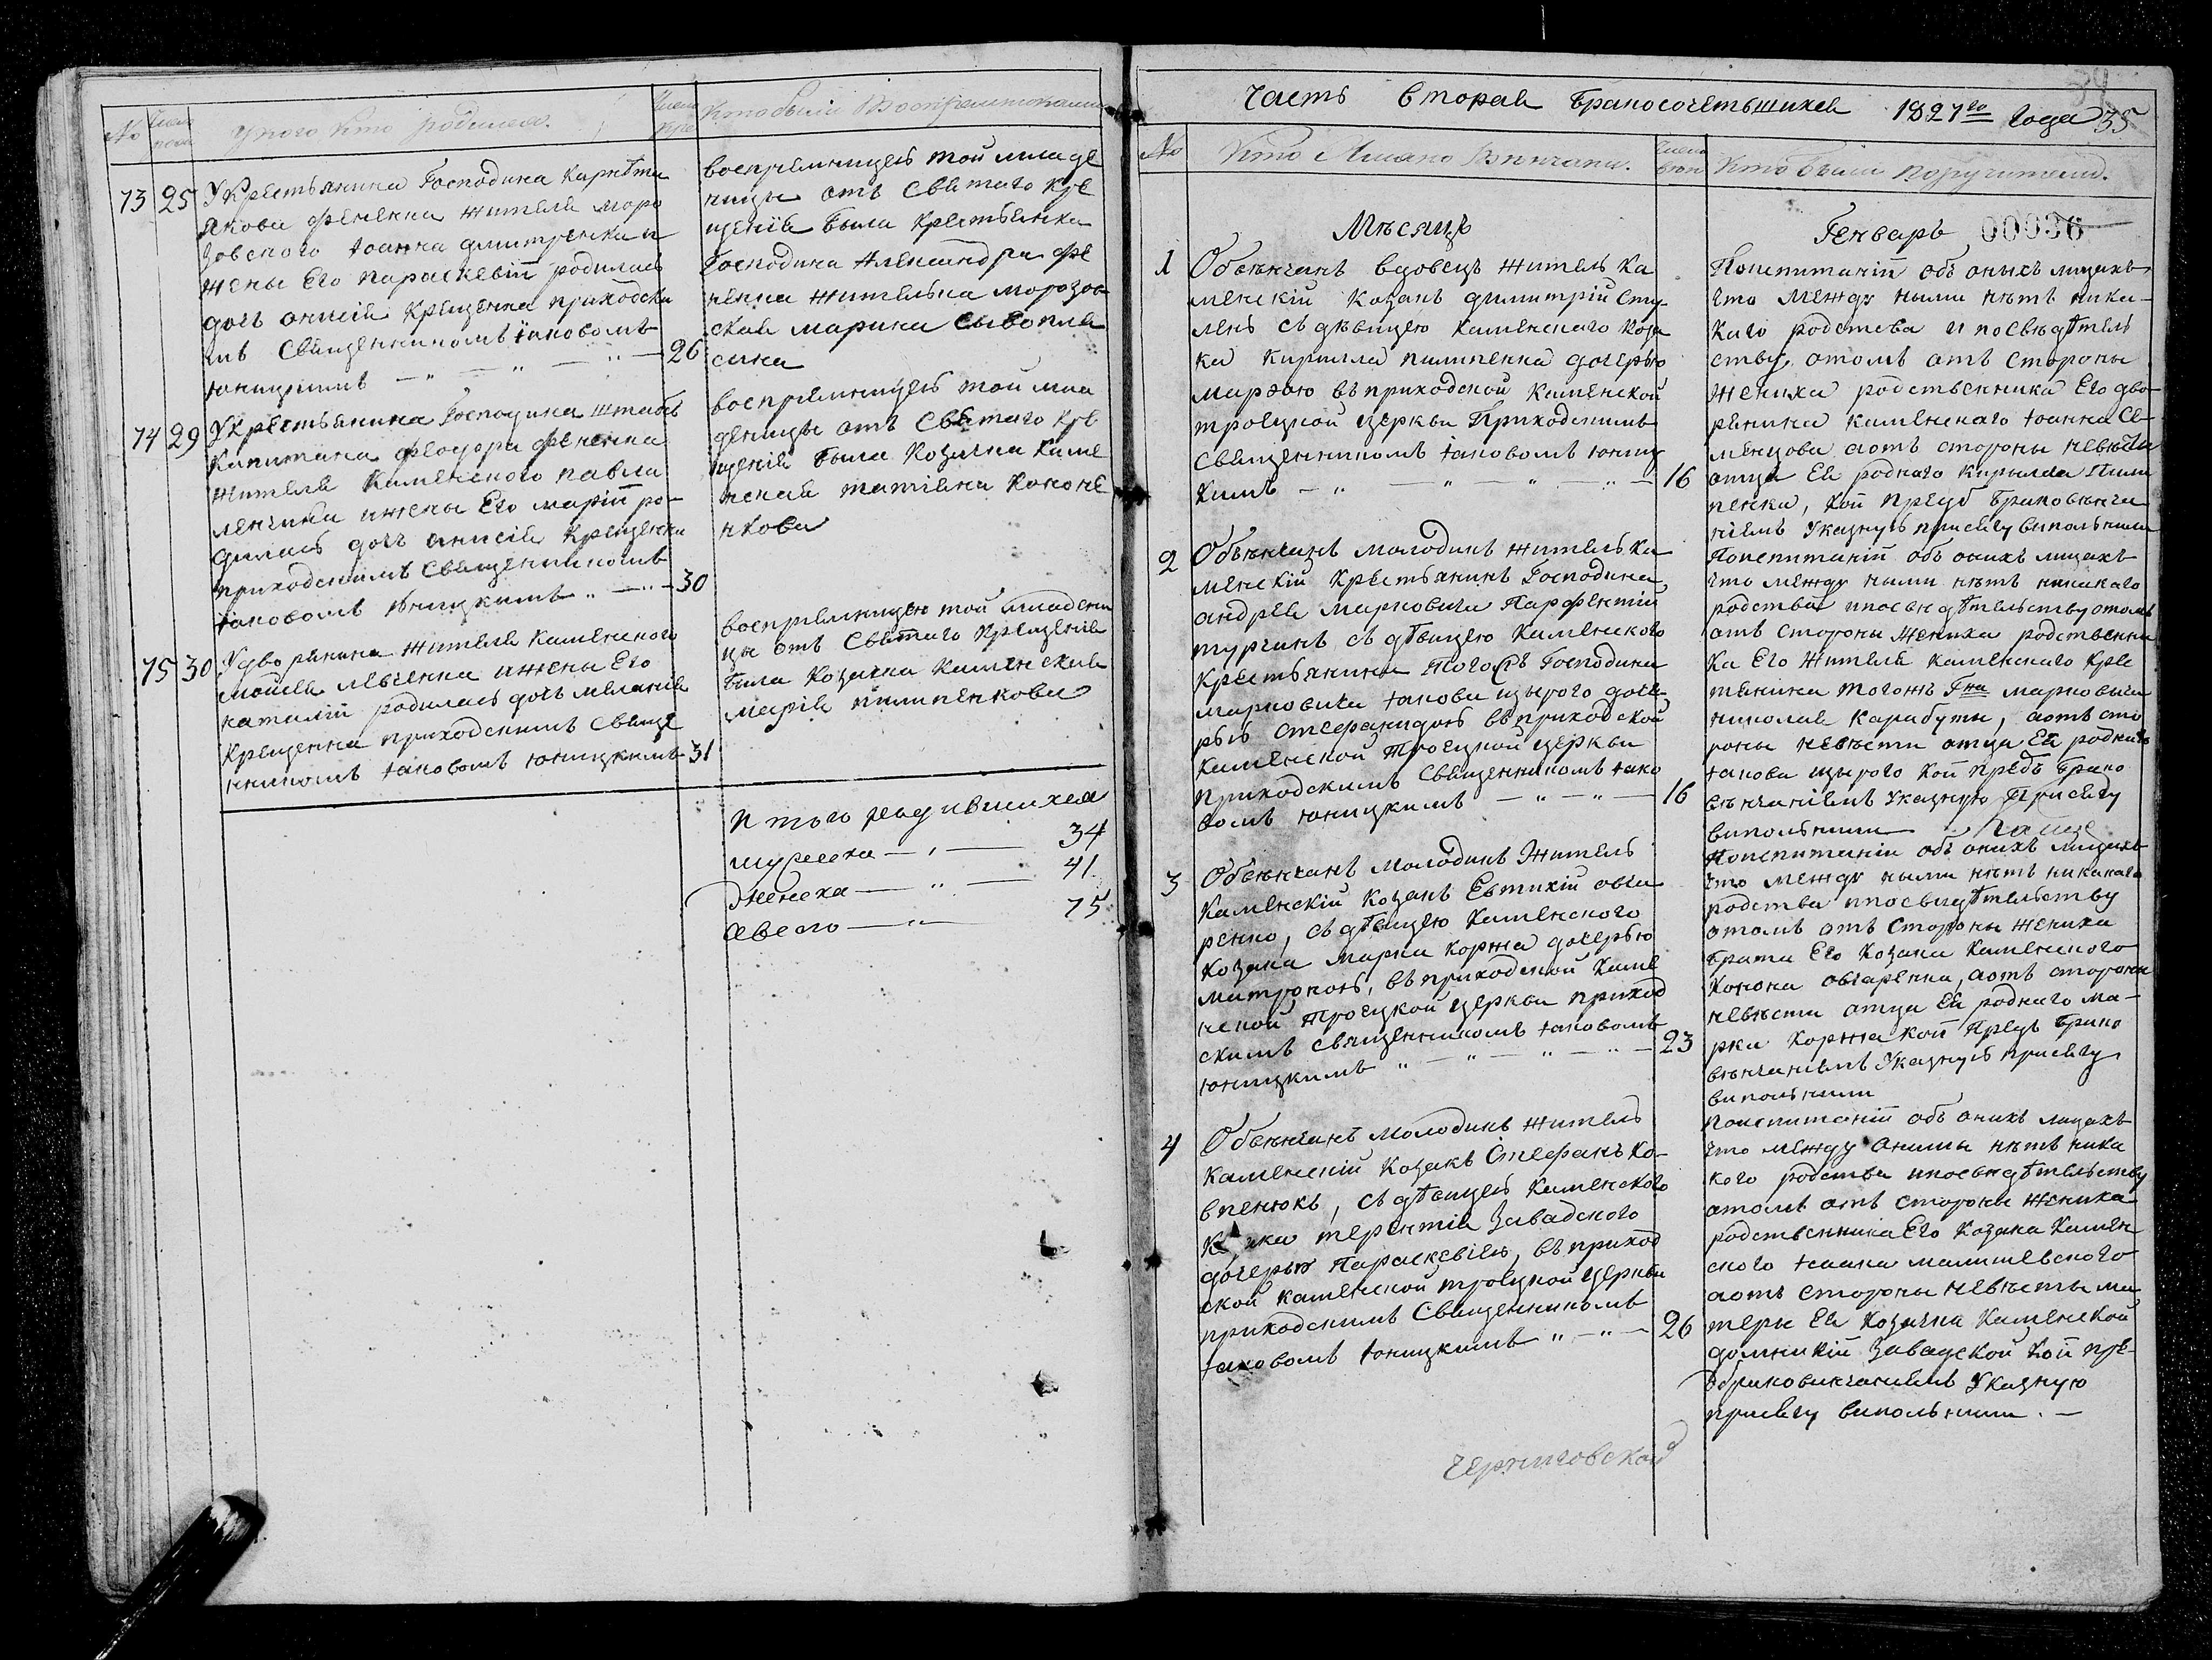 №
Число
рож
У кого кто родился.
Число
кре
Кто были Восприемниками
73 25 У Крестьянина Господина Корнѣта
Якова Фененка жителя моро
зовского Іоанна Дмитренка и
жены Его параскевіи родилась
дочь анисія Крещенна приходски
мъ Священникомъ Іаковомъ
Юницкимъ — " — " — " — 26
воспріемницею той младе
ницы отъ Святаго Кре
щенія была Крестьянка
Господина Александра Фе
ненка жителька морозов
ская марина
74 29 У Крестьянина Господина Штабсъ
Капитана Феодора Фененка
жителя Каменского павла
и жены Его маріи ро-
дилась дочь анисія Крещенна
приходскимъ Священникомъ
Іаковомъ Юницкимъ " — " — 30
воспріемницею той мла
деницы отъ Святаго Кре
щенія была Козачка Каме
нская татіяна Кононе
нкова
75 30 У дворянина жителя Каменского
мойсея левченка и жены Его
наталіи родилась дочь меланія
Крещенна приходскимъ Свяще
нникомъ Іаковомъ Юницкимъ 31
воспріемницею той младени
цы отъ Святаго Крещенія
была Козачка Каменская
марія пилипенкова
Итого родившихся
мужеска — " — 34
Женска — " — 41
авсего — " — 75
39
Часть вторая Бракосочетавшихся 1827го Года 35
№
Кто Именно Вѣнчаны.
Число
вѣнч
Кто были поручители.
Мѣсяцъ
Генварь 00036
1 Обвѣнчанъ вдовецъ житель Ка
менскій Козакъ Димитрій Сту-
лень съ дѣвицею Каменскаго Коза
ка Кирилла пилипенка дочерью
марѳою въ приходской Каменской
троецкой церкви Приходскимъ
Священникомъ Іаковомъ Юниц
кимъ — " — " — " — " — 16
По испитаніи объ оныхъ лицахъ
что между ными нѣтъ ника-
каго родства и по свѣдѣтель
ству о томъ отъ Стороны
Жениха родственника Его дво-
ренина Каменскаго Іоанна Се-
менцова а отъ стороны невѣсты
отца Ея роднаго Кирилла Пили
пенка, кои предъ Браковѣнча
ніемъ Указную присягу выполънили
2 Обвѣнчанъ молодикъ житель Ка
менскій Крестьянинъ Господина
андрея Марковича Парфентій
турчинъ съ дѣвицею Каменского
Крестьянина того жъ Господина
марковича Іакова щырого доче
рью Стефанидою въ приходской
Каменской Троецкой церкви
Приходскимъ Священникомъ Іако
вомъ Юницкимъ — " — " — 16
По испитаніи объ онихъ лицахъ
что между ными нѣтъ никакаго
родства и по свѣдѣтельству о томъ
отъ Стороны Жениха родственни
ка Его Жителя Каменскаго Кре
стяника тогожъ Гна марковича
николая Карабуты, а отъ сто
роны невѣсти отца Ей роднаго
Іакова щырого кои предъ Брако
вѣнчаніемъ Указную Присягу
выполънили
3 Обвѣнчанъ молодикъ Житель
Каменскій Козакъ Евтихій овча
ренко, съ дѣвицею Каменского
Козака Марка Коржа дочерью
митроною, въ приходской Каме
нской Троецкой церкви приход
скимъ священникомъ Іаковомъ
Юницкимъ " — " — " — " — 23
По испитаніи объ онихъ лицахъ
что между ными нѣтъ никакаго
родства и по свидѣтельству
о томъ отъ Стороны Жениха
Брата Его Козака Каменского
Конона овчаренка, а отъ стороны
невѣсти отца Ей роднаго Ма-
рка Коржа кои Предъ Брако
вѣнчаніемъ Указную присягу
виполънили
4 Обвѣнчанъ молодикъ житель
Каменскій Козакъ Стефанъ Ко-
впенюкъ, съ дѣвицею Каменского
терентія Завадского
дочерью Параскевіею, въ приход
ской Каменской троецкой церкви
приходскимъ Священникомъ
Іаковомъ Юницкимъ " — " — 26
По испитаніи объ онихъ лицахъ
что между оними нѣтъ ника
кого родства и по свѣдѣтельству
о томъ отъ Стороны Жениха
родственника Его Козака Камен
ского Іоанна малишевского
а отъ Стороны Невѣсты ма
тери Ея Козачка Каменской
домникіи Завадской кои пре-
дбраковинчаніемъ Указную
присягу виполънили. —
Черниговской